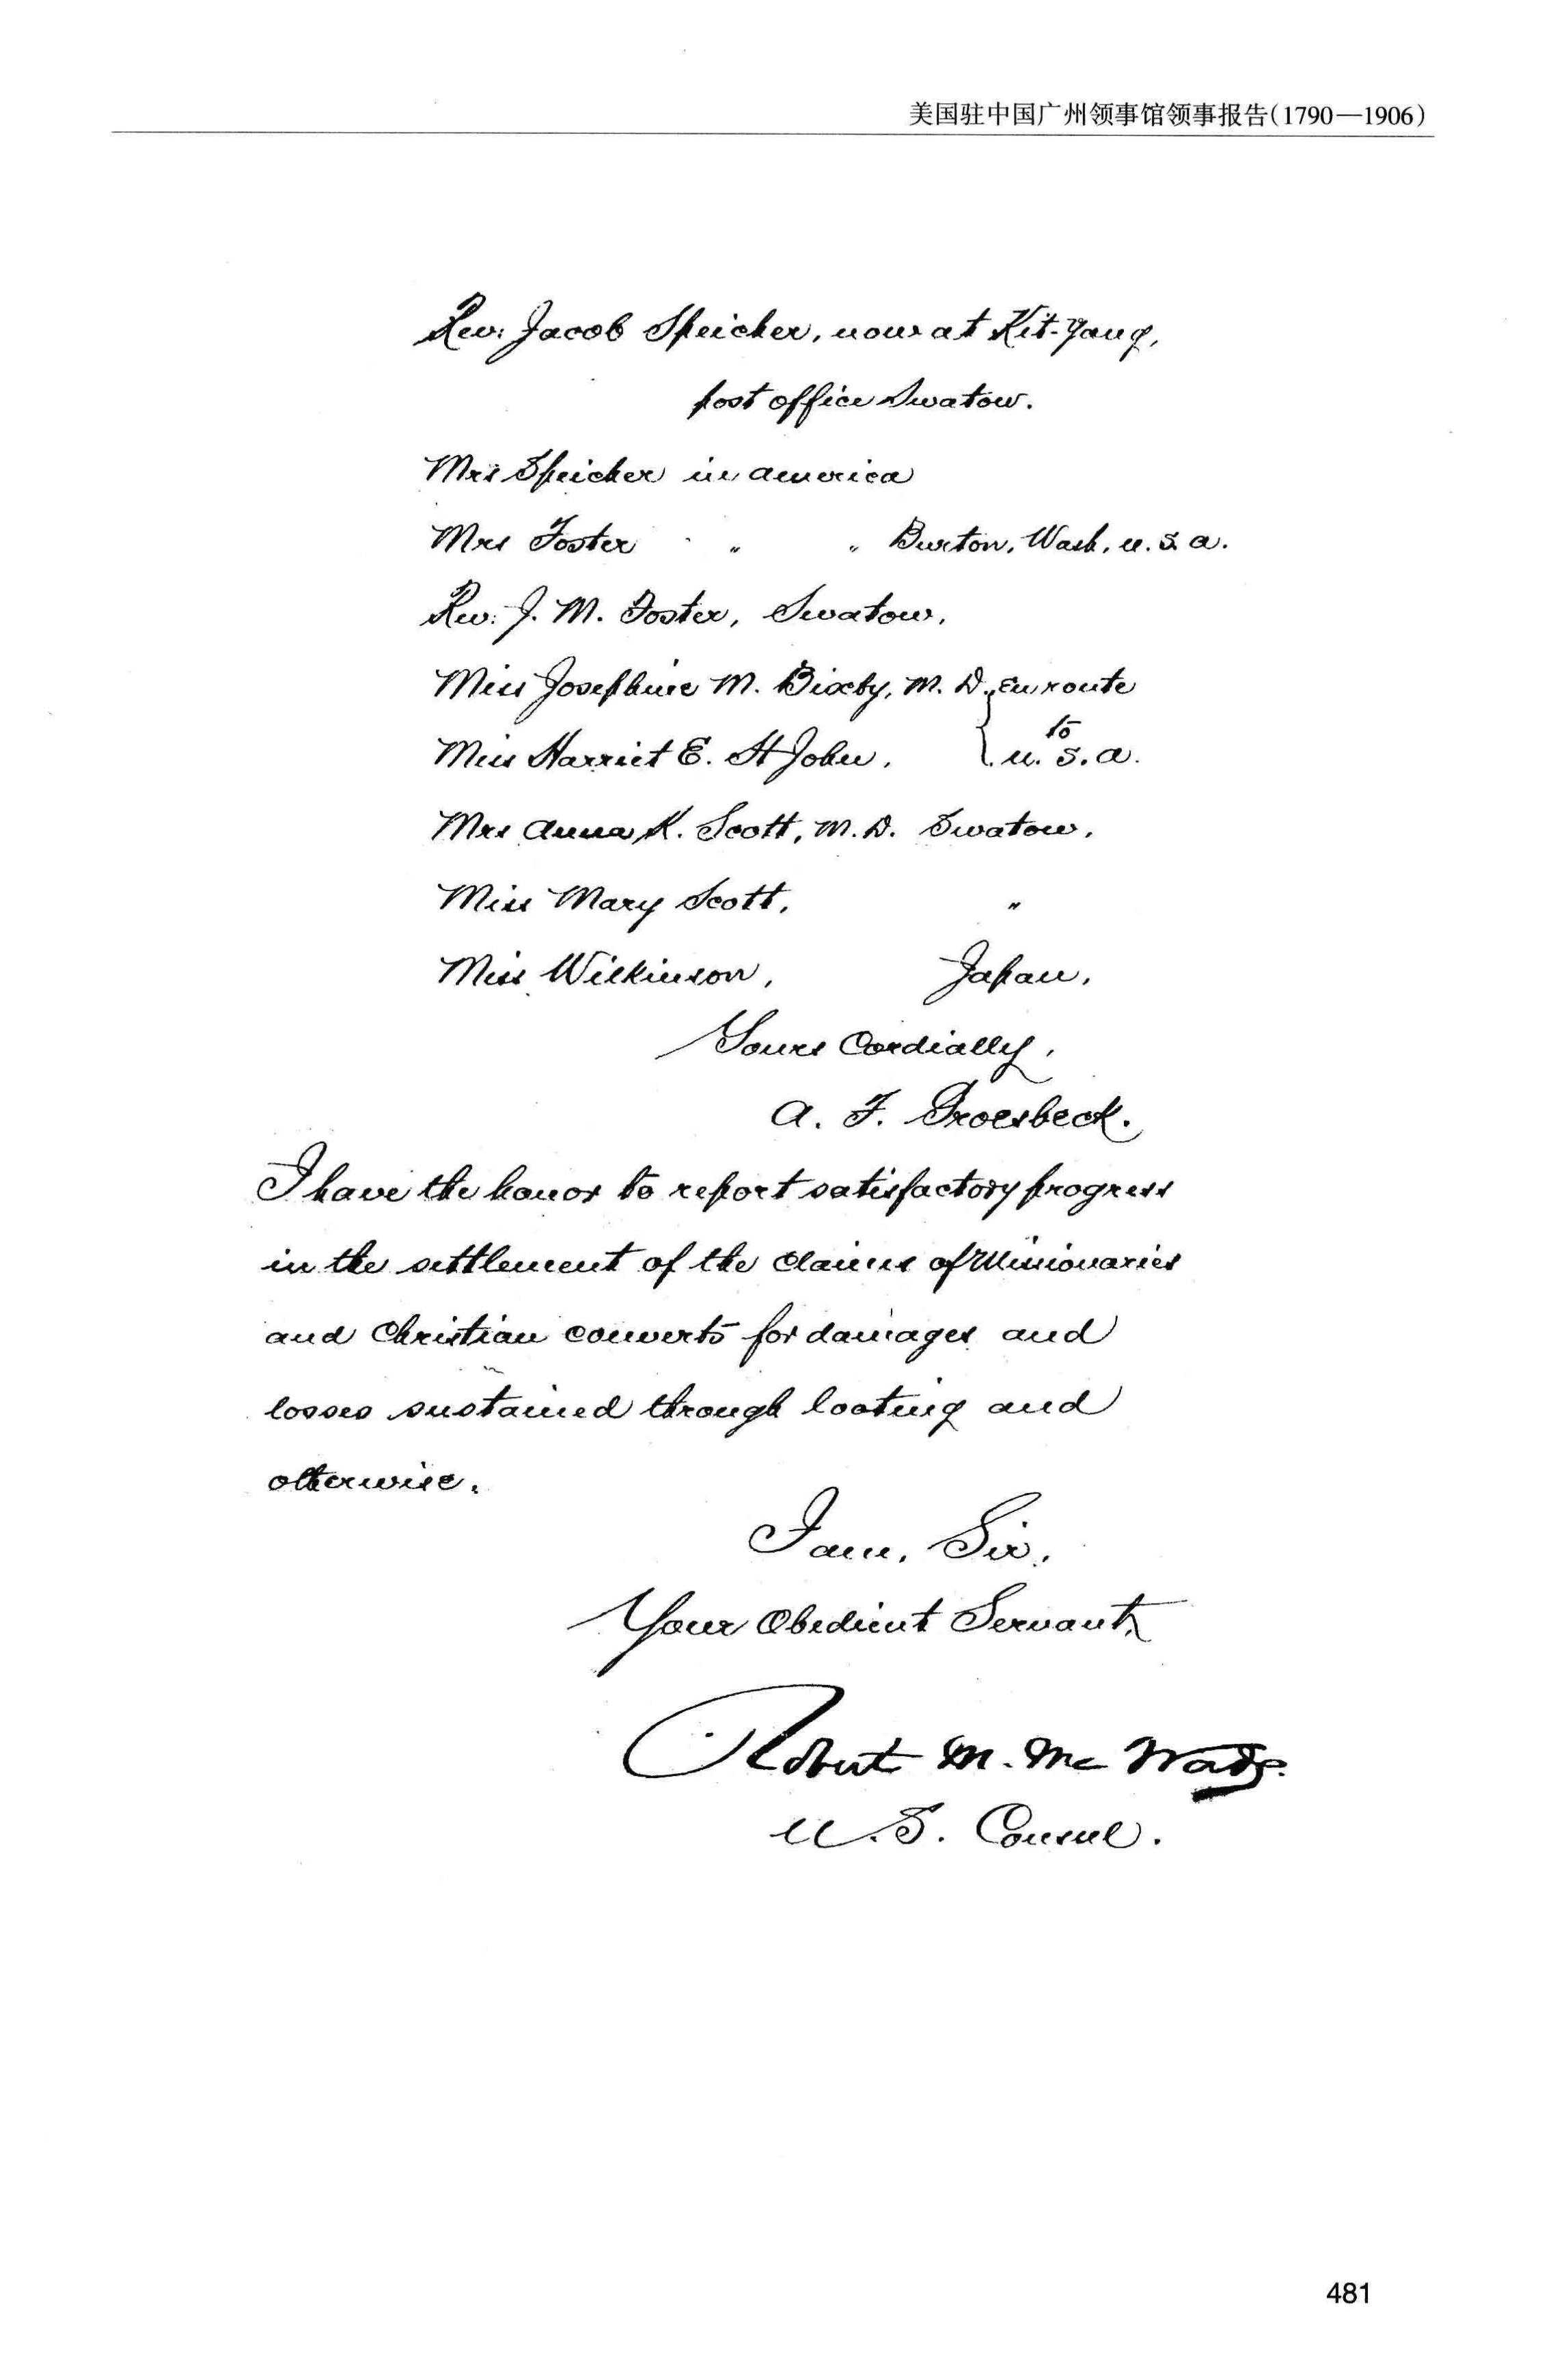 美国驻中国广州领事馆领事报告(1790—1906)
Rev: Jacob Speicher, now at Kit-Yang,
post office Swatow.
Mrs Speicher in America
Mrs Foster " " Burton, Wash, U.S.A.
Rev: J. M. Foster, Swatow,
Miss Josephine M. Bixby, M. D. } En route
to
Miss Harriet E. St John, } U.S.A.
Mrs Anna K. Scott, M.D. Swatow,
Miss Mary Scott, "
Miss Wilkinson, Japan,
Yours Cordially,
A. F. Groesbeck.
I have the honor to report satisfactory progress
in the settlement of the claims of Missionaries
and Christian converts for damages and
losses sustained through looting and
otherwise.
I am, Sir,
Your Obedient Servant,
Robert M. McWade.
U.S. Consul.
481